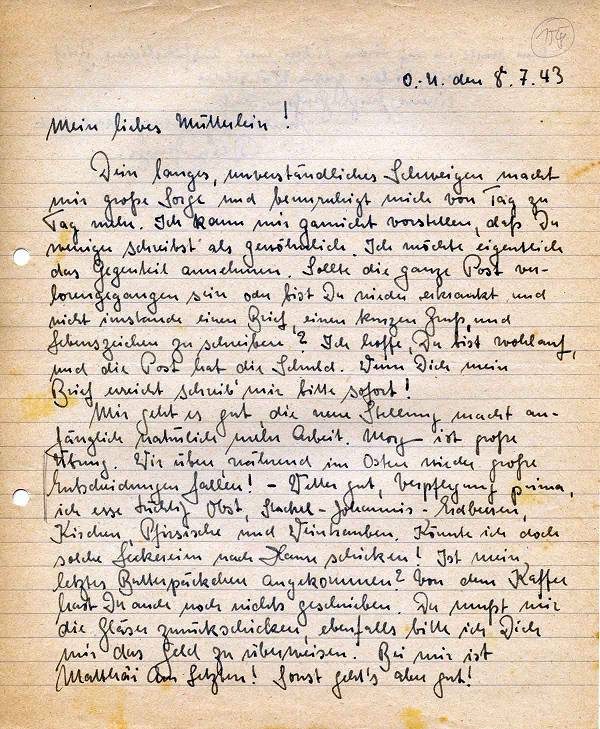 O.U. den 8.7.43
Mein liebes Mütterlein!
Dein langes, unverständliches Schweigen macht
mir große Sorge und beunruhigt mich von Tag zu
Tag mehr. Ich kann mir garnicht vorstellen, daß Du
weniger schreibst als gewöhnlich. Ich möchte eigentlich
das Gegenteil annehmen. Sollte die ganze Post ver-
lorengegangen sein oder bist Du wieder erkrankt und
nicht imstande einen Brief, einen kurzen Gruß, und
Lebenszeichen zu schreiben? Ich hoffe, Du bist wohlauf,
und die Post hat die Schuld. Wenn Dich mein
Brief erreicht schreib' mir bitte sofort!
Mir geht es gut, die neue Stellung macht an-
fänglich natürlich mehr Arbeit. Morg ist große
Übung. Wir üben, während im Osten wieder große
Entscheidungen fallen! - Wetter gut, Verpflegung prima,
ich esse tüchtig Obst, Stachel- Johannis- Erdbeeren,
Kirschen, Pfirsische und Weintrauben. Könnte ich doch
solche Leckereien nach Hause schicken! Ist mein
letztes Butterpäckchen angekommen? Von dem Kaffee
hast Du auch noch nichts geschrieben. Du mußt mir
die Gläser zurückschicken, ebenfalls bitte ich Dich
mir das Geld zu überweisen. Bei mir ist
Matthäi am Letzten! Sonst geht's aber gut!